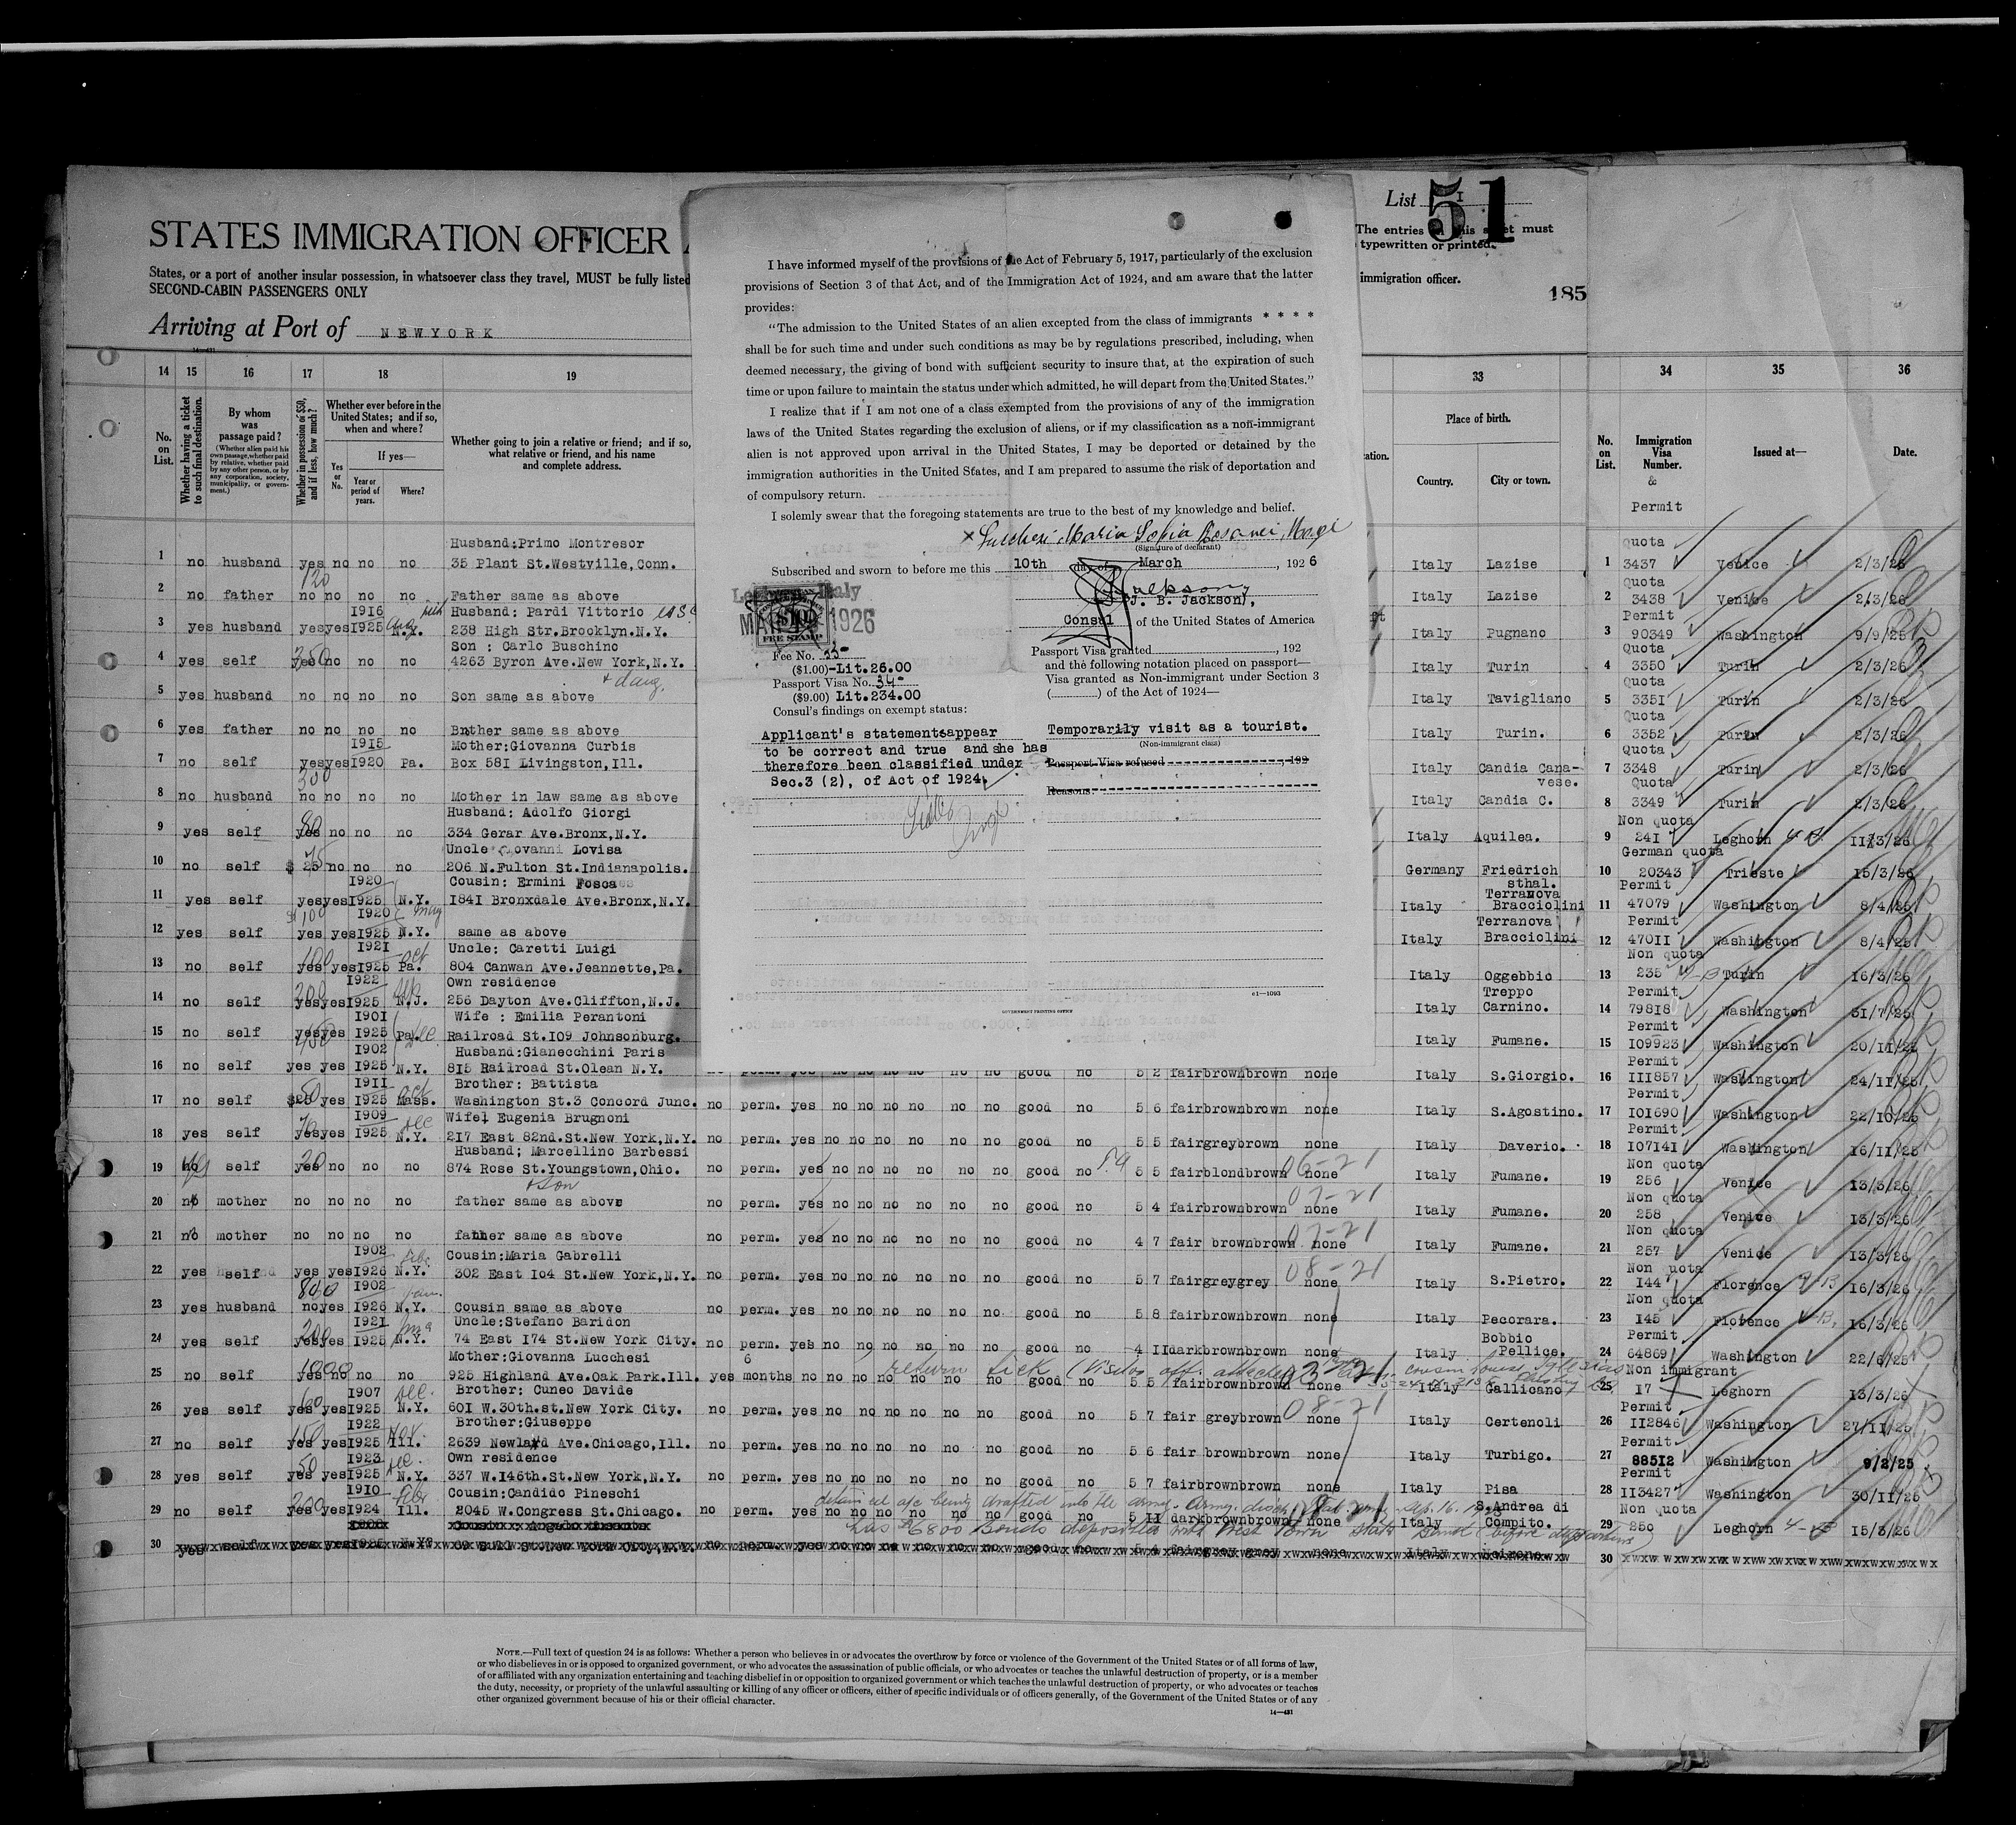 List 51
STATES IMMIGRATION OFFICER
The entries on this sheet must
typewritten or printed.
States, or a port of another insular possession, in whatsoever class they travel, MUST be fully listed
immigration officer.
SECOND-CABIN PASSENGERS ONLY
185
Arriving at Port of NEWYORK
I have informed myself of the provisions of the Act of February 5, 1917, particularly of the exclusion
provisions of Section 3 of that Act, and of the Immigration Act of 1924, and am aware that the latter
provides:
“The admission to the United States of an alien excepted from the class of immigrants * * * *
shall be for such time and under such conditions as may be by regulations prescribed, including, when
deemed necessary, the giving of bond with sufficient security to insure that, at the expiration of such
time or upon failure to maintain the status under which admitted, he will depart from the United States.”
I realize that if I am not one of a class exempted from the provisions of any of the immigration
laws of the United States regarding the exclusion of aliens, or if my classification as a non-immigrant
alien is not approved upon arrival in the United States, I may be deported or detained by the
immigration authorities in the United States, and I am prepared to assume the risk of deportation and
of compulsory return.
I solemnly swear that the foregoing statements are true to the best of my knowledge and belief.
Maria Sofia
(Signature of declarant)
Subscribed and sworn to before me this 10th day of March, 1926
(J. B. Jackson),
Consul of the United States of America
Italy
1926
FEE STAMP
Fee No. 33-
($1.00)-Lit.26.00
Passport Visa No. 34-
($9.00) Lit.234.00
Consul's findings on exempt status:
Applicant's statements appear
to be correct and true and she has
therefore been classified under
Sec.3 (2), of Act of 1924.
Passport Visa granted, 192
and the following notation placed on passport—
Visa granted as Non-immigrant under Section 3
( ) of the Act of 1924—
Temporarily visit as a tourist.
(Non-immigrant class)
Passport Visa refused, 192
Reasons:
61—1093
GOVERNMENT PRINTING OFFICE
14 15 16 17 18 19 33 34 35 36
No. on List.
Whether having a ticket to such final destination.
By whom was passage paid?
(Whether alien paid his own passage, whether paid by relative, whether paid by any other person, or by any corporation, society, municipality, or government.)
Whether in possession of $50, and if less, how much?
Whether ever before in the United States; and if so, when and where?
Yes or No.
If yes—
Year or period of years.
Where?
Whether going to join a relative or friend; and if so, what relative or friend, and his name and complete address.
Place of birth.
Country.
City or town.
No. on List.
Immigration Visa Number.
& Permit
Issued at—
Date.
Husband:Primo Montresor
1 no husband yes no no no 35 Plant St.Westville,Conn. Italy Lazise 1 Quota 3437 Venice 2/3/26
2 no father no no no no Father same as above Italy Lazise 2 Quota 3438 Venice 2/3/26
1916 Husband: Pardi Vittorio
3 yes husband yes yes 1925 N.Y. 238 High Str.Brooklyn.N.Y. Italy Pugnano 3 Permit 90349 Washington 9/9/25
Son : Carlo Buschino
4 yes self yes no no no 4263 Byron Ave.New York,N.Y. Italy Turin 4 Quota 3350 Turin 2/3/26
+ daug.
5 yes husband no no no no Son same as above Italy Tavigliano 5 Quota 3351 Turin 2/3/26
6 yes father no no no no Brother same as above Italy Turin. 6 Quota 3352 Turin 2/3/26
1915 Mother:Giovanna Curbis
7 no self yes yes 1920 Pa. Box 581 Livingston,Ill. Italy Candia Canavese. 7 Quota 3348 Turin 2/3/26
8 no husband no no no no Mother in law same as above Italy Candia C. 8 Quota 3349 Turin 2/3/26
Husband: Adolfo Giorgi
9 yes self yes no no no 334 Gerar Ave.Bronx,N.Y. Italy Aquilea. 9 Non quota 241 Leghorn 11/3/26
Uncle Giovanni Lovisa
10 no self $ 25 no no no 206 N.Fulton St.Indianapolis. Germany Friedrich sthal. 10 German quota 20343 Trieste 15/3/26
1920 Cousin: Ermini Fosca
11 yes self yes yes 1925 N.Y. 1841 Bronxdale Ave.Bronx,N.Y. Italy Terranova Bracciolini 11 Permit 47079 Washington 8/4/25
1920
12 yes self yes yes 1925 N.Y. same as above Italy Terranova Bracciolini 12 Permit 47011 Washington 8/4/25
1921 Uncle: Caretti Luigi
13 no self yes yes 1925 Pa. 804 Canwan Ave.Jeannette,Pa. Italy Oggebbio 13 Non quota 235 Turin 16/3/26
1922 Own residence
14 no self yes yes 1925 N.J. 256 Dayton Ave.Cliffton,N.J. Italy Treppo Carnino. 14 Permit 79818 Washington 31/7/25
1901 Wife : Emilia Perantoni
15 no self yes yes 1925 Pa. Railroad St.109 Johnsonburg. Italy Fumane. 15 Permit 109923 Washington 20/11/25
1902 Husband:Gianecchini Paris
16 no self yes yes 1925 N.Y. 815 Railroad St.Olean N.Y. no perm. yes no no no no no no good no 5 2 fair brown brown none Italy S.Giorgio. 16 Permit 111857 Washington 24/11/25
1911 Brother: Battista
17 no self yes 1925 Mass. Washington St.3 Concord Junc. no perm. yes no no no no no no good no 5 6 fair brown brown none Italy S.Agostino. 17 Permit 101690 Washington 22/10/25
1909 Wife: Eugenia Brugnoni
18 yes self yes yes 1925 N.Y. 217 East 82nd.St.New York,N.Y. no perm. yes no no no no no no good no 5 5 fair grey brown none Italy Daverio. 18 Permit 107141 Washington 16/11/25
Husband; Marcellino Barbessi
19 no self yes no no no 874 Rose St.Youngstown,Ohio. no perm. yes no no no no no no good no 5 5 fair blond brown none 06-21 Italy Fumane. 19 Non quota 256 Venice 13/3/26
+ Son
20 no mother no no no no father same as above no perm. yes no no no no no no good no 5 4 fair brown brown none 07-21 Italy Fumane. 20 Non quota 258 Venice 13/3/26
21 no mother no no no no father same as above no perm. yes no no no no no no good no 4 7 fair brown brown none 07-21 Italy Fumane. 21 Non quota 257 Venice 13/3/26
1902 Cousin:Maria Gabrelli
22 yes self yes yes 1926 N.Y. 302 East 104 St.New York,N.Y. no perm. yes no no no no no no good no 5 7 fair grey grey none 08-21 Italy S.Pietro. 22 Non quota 144 Florence 16/3/26
1902
23 yes husband no yes 1926 N.Y. Cousin same as above no perm. yes no no no no no no good no 5 8 fair brown brown none Italy Pecorara. 23 Non quota 145 Florence 16/3/26
1921 Uncle:Stefano Baridon
24 yes self yes yes 1925 N.Y. 74 East 174 St.New York City. no perm. yes no no no no no no good no 4 11 dark brown brown none Italy Bobbio Pellice. 24 Permit 64869 Washington 22/6/25
Mother:Giovanna Lucchesi
25 no self yes no no no 925 Highland Ave.Oak Park.Ill. yes 6 months no no no no no no no good no 5 5 fair brown brown none Italy Gallicano 25 Non immigrant 17 Leghorn 13/3/26
1907 Brother: Cuneo Davide
26 yes self yes yes 1925 N.Y. 601 W.30th.st.New York City. no perm. yes no no no no no no good no 5 7 fair grey brown none 08-21 Italy Certenoli 26 Permit 112846 Washington 27/11/25
1922 Brother:Giuseppe
27 no self yes yes 1925 Ill. 2639 Newland Ave.Chicago,Ill. no perm. yes no no no no no no good no 5 6 fair brown brown none Italy Turbigo. 27 Permit 88512 Washington 9/2/25
1923 Own residence
28 yes self yes yes 1925 N.Y. 337 W.146th.St.New York,N.Y. no perm. yes no no no no no no good no 5 7 fair brown brown none Italy Pisa 28 Permit 113427 Washington 30/11/25
detained a/c being drafted into the army.
1910 Cousin:Candido Pineschi
29 no self yes yes 1924 Ill. 2045 W.Congress St.Chicago. no perm. yes no no no no no no good no 5 11 dark brown brown none Italy S.Andrea di Compito. 29 Non quota 250 Leghorn 15/3/26
has $6800 bonds deposited with West Town State Bank (before departure)
30 yes self
30
NOTE.—Full text of question 24 is as follows: Whether a person who believes in or advocates the overthrow by force or violence of the Government of the United States or of all forms of law,
or who disbelieves in or is opposed to organized government, or who advocates the assassination of public officials, or who advocates or teaches the unlawful destruction of property, or is a member
of or affiliated with any organization entertaining and teaching disbelief in or opposition to organized government or which teaches the unlawful destruction of property, or who advocates or teaches
the duty, necessity, or propriety of the unlawful assaulting or killing of any officer or officers, either of specific individuals or of officers generally, of the Government of the United States or of any
other organized government because of his or their official character.
14—431